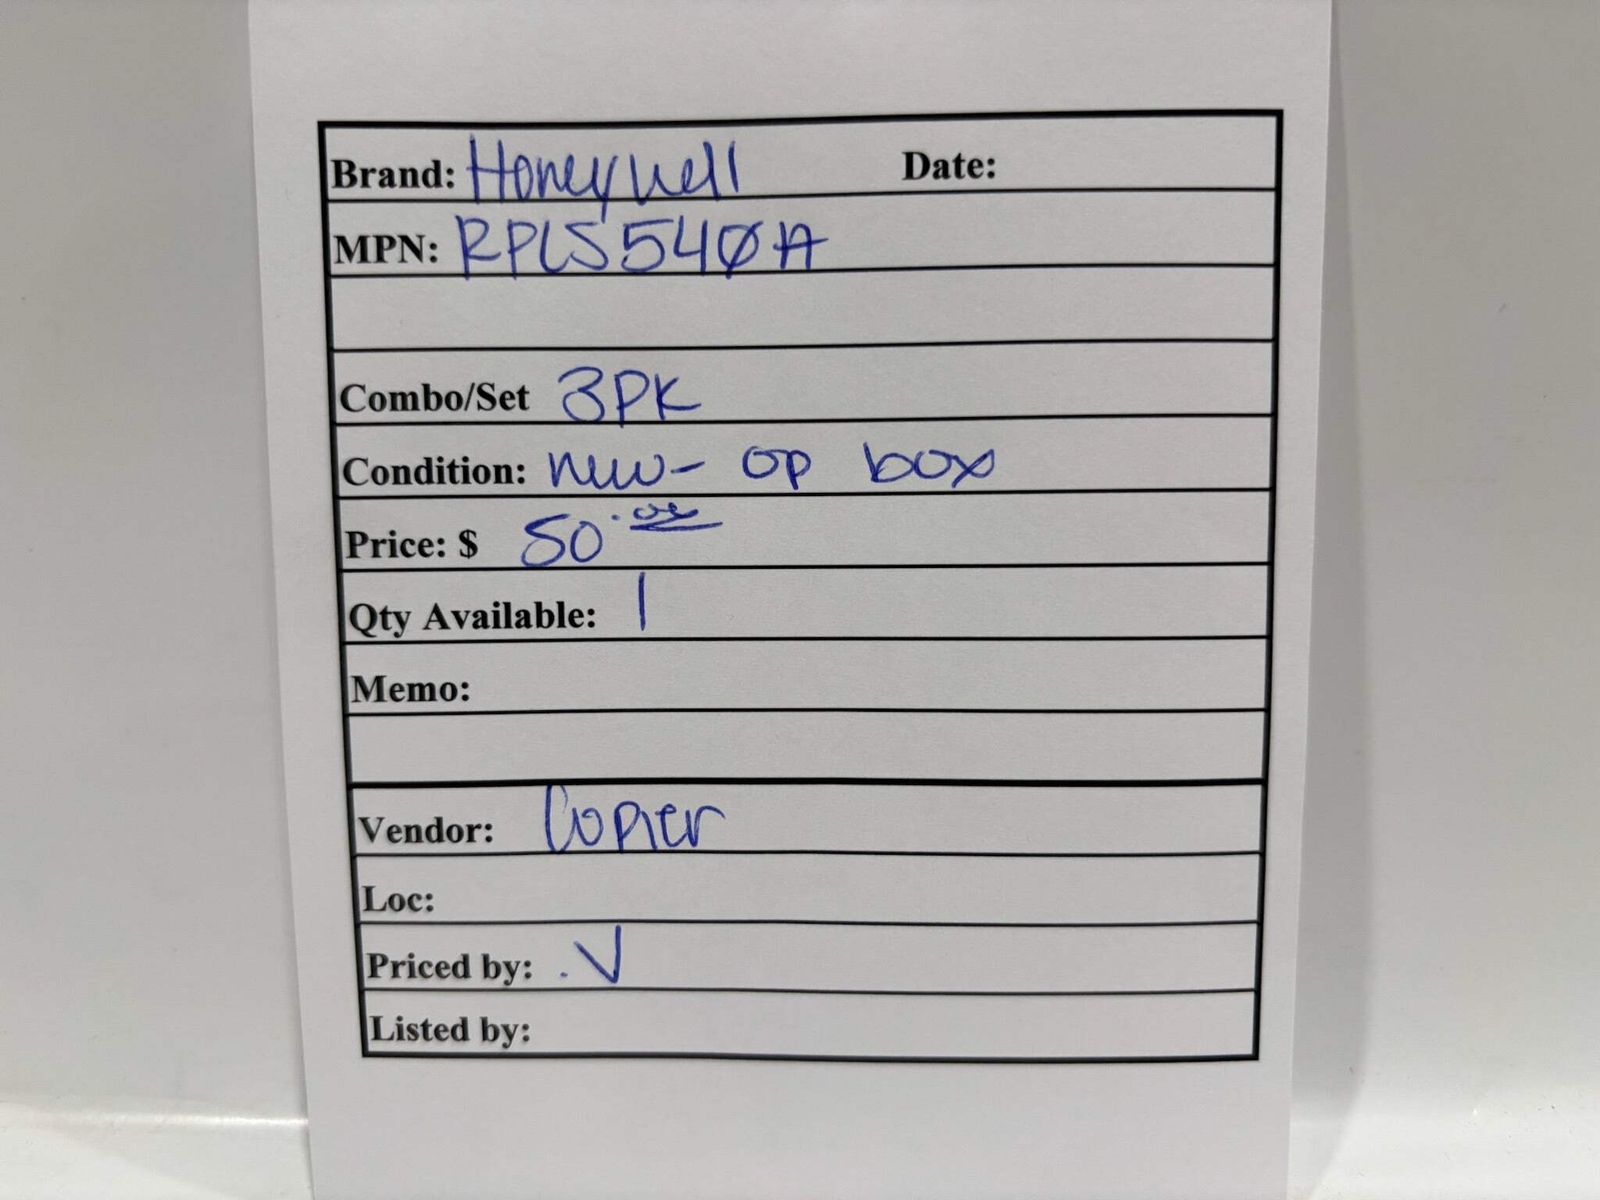 Brand: Honeywell Date:
MPN: RPLS540A
Combo/Set 3PK
Condition: new- op box
Price: $ 50.00
Qty Available: 1
Memo:
Vendor: Copier
Loc:
Priced by: .V
Listed by: